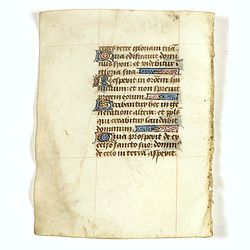 ges terre gloriam tuã.
Quia edificauit domi
nus syon: et videbitur in
gloria sua.
Respexit in orõnem hu
milium et non spreuit
precem eorum.
Scribantur hec in ge
neratione altera: et popu
lus qui creabitur laudabit
dominum.
Quia prospexit de ex
celso sancto suo: domin⁹
de celo in terrã aspexit.